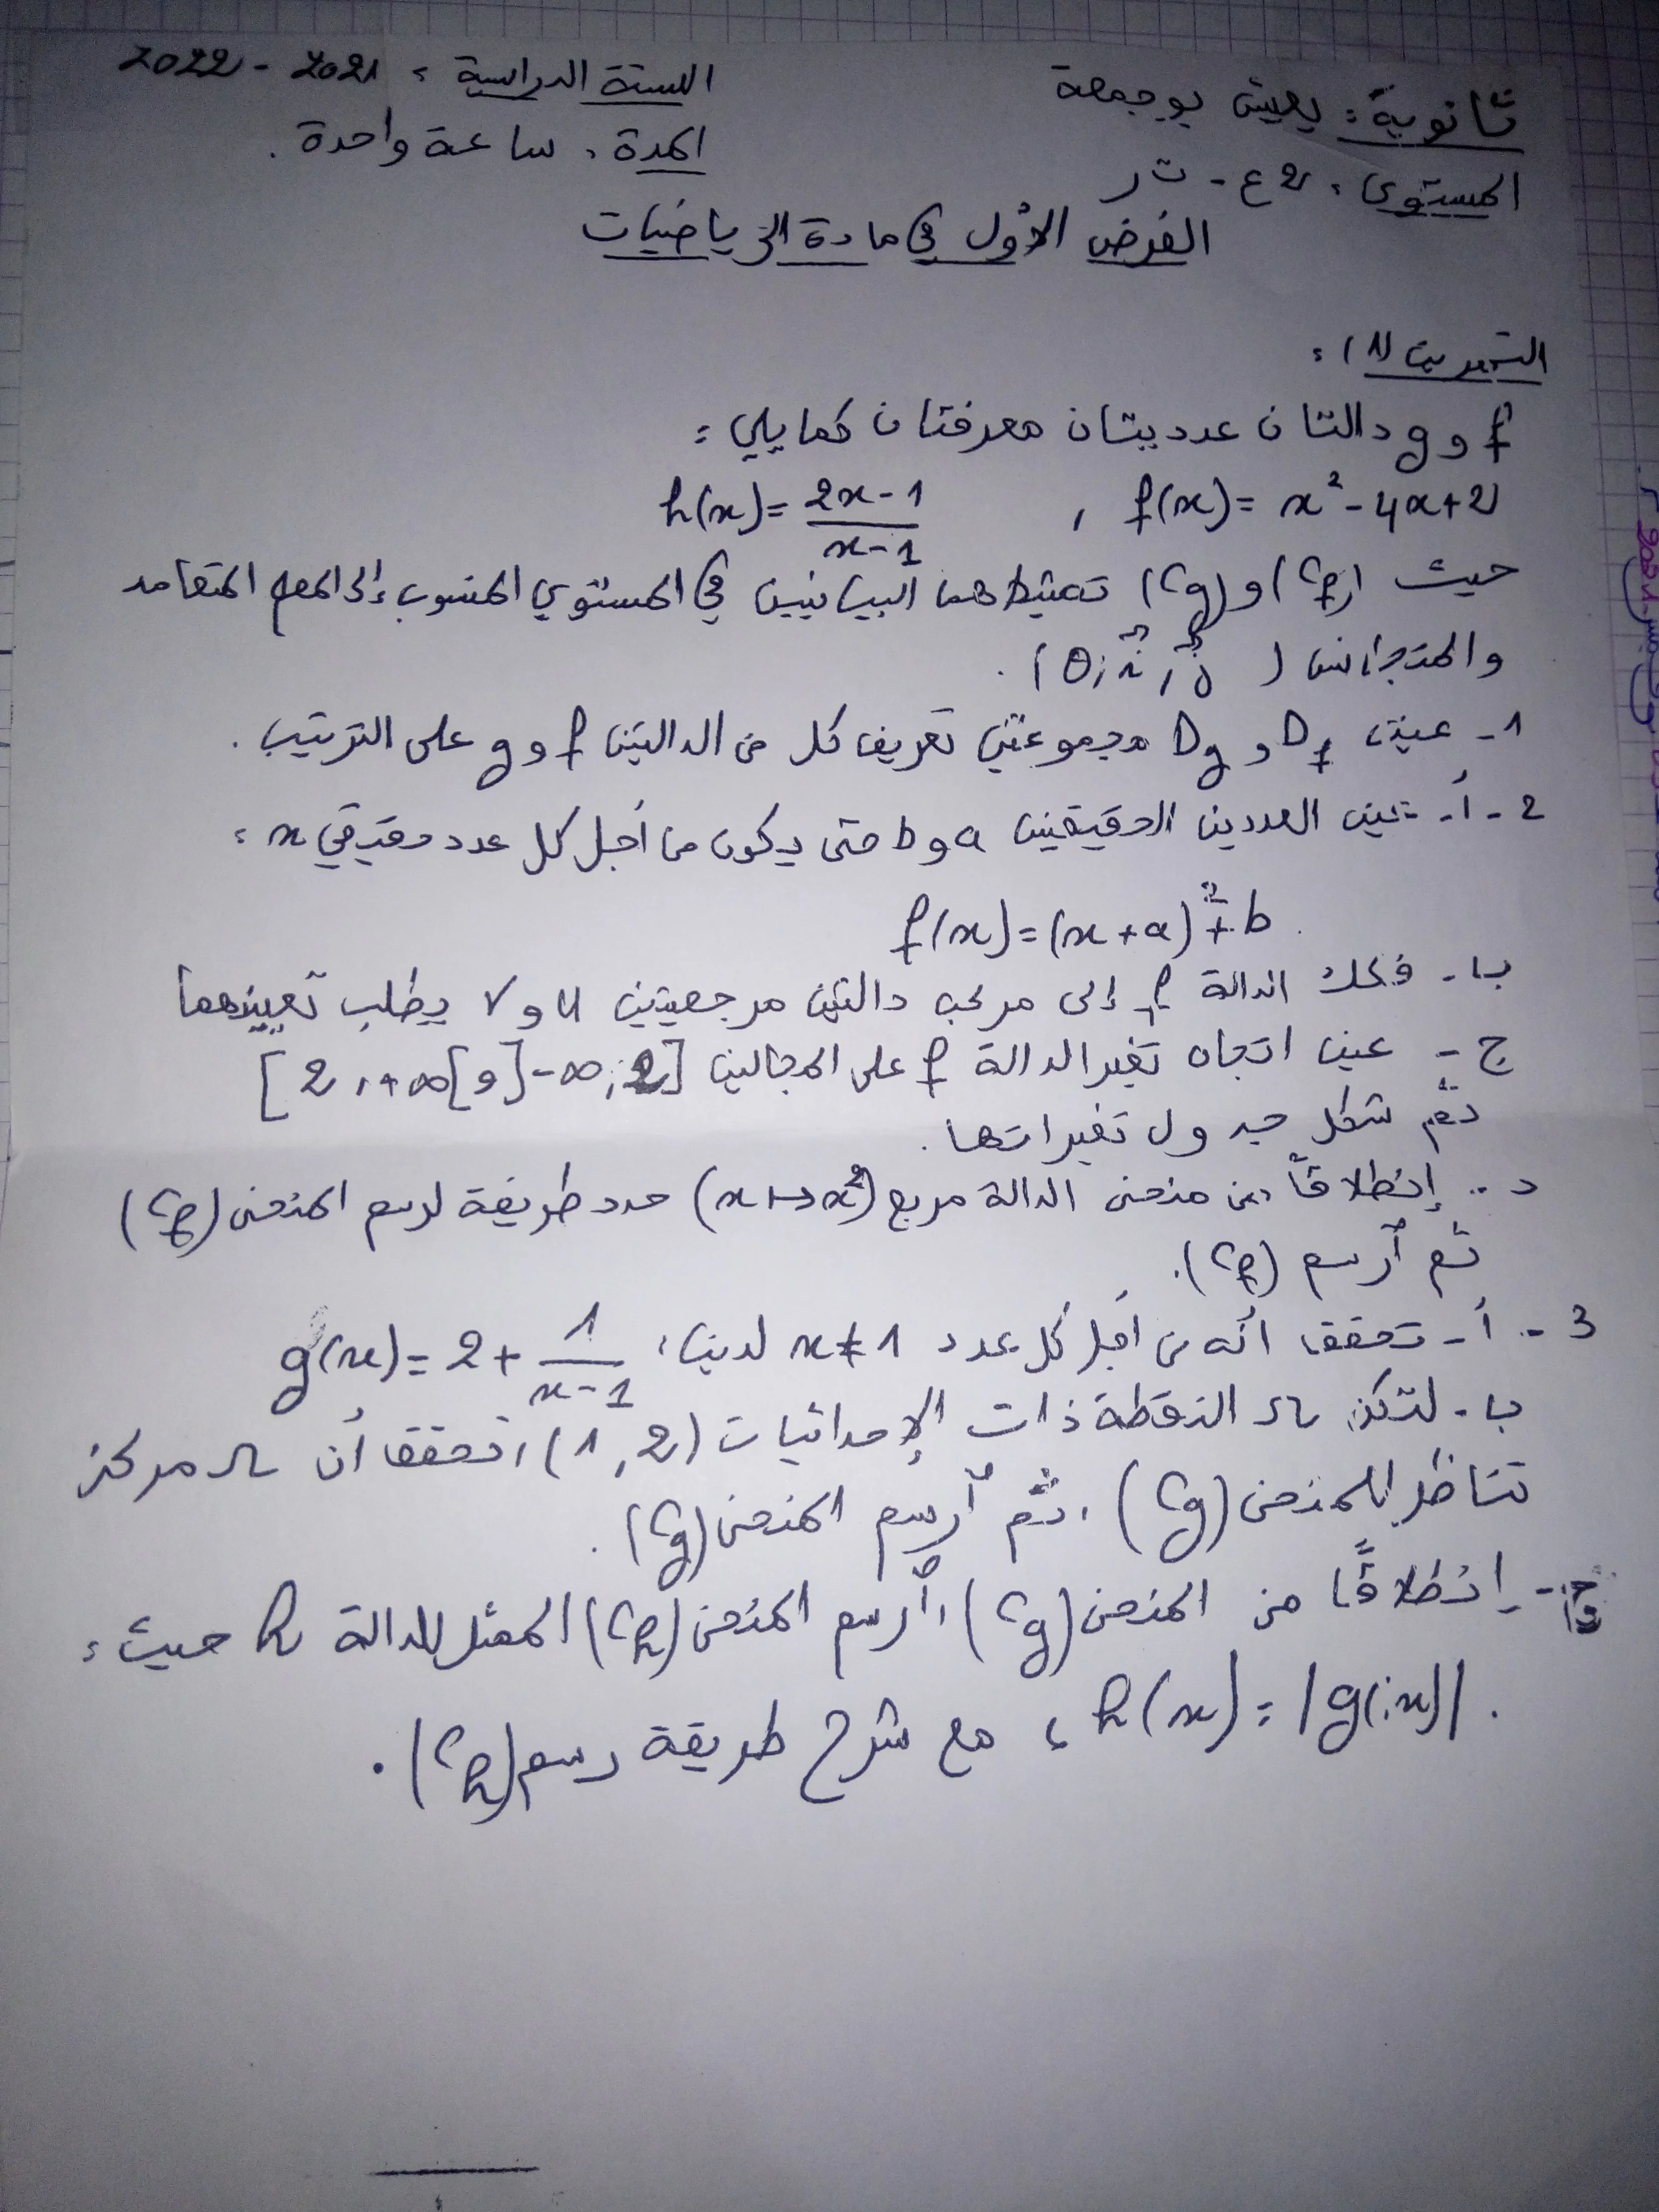 ثانوية: يعيش بوجمعة
السنة الدراسية: 2021 - 2022
المستوى: 2 ع - ت ر
المدة: ساعة واحدة.
الفرض الأول في مادة الرياضيات
التمرين (1):
f و g دالتان عدديتان معرفتان كما يلي:
f(x) = x² - 4x + 2 , h(x) = (2x - 1)/(x - 1)
حيث (Cf) و (Cg) تمثيلاهما البيانيين في المستوي المنسوب إلى المعلم المتعامد
والمتجانس (O; i, j).
1 - عين Df و Dg مجموعتي تعريف كل من الدالتين f و g على الترتيب.
2 - أ - عين العددين الحقيقيين a و b حتى يكون من أجل كل عدد حقيقي x:
f(x) = (x + a)² + b
ب - فكك الدالة f إلى مركب دالتين مرجعيتين u و v يطلب تعيينهما
ج - عين اتجاه تغير الدالة f على المجالين ]-∞; 2] و [2, +∞[
ثم شكل جدول تغيراتها.
د - إنطلاقاً من منحنى الدالة مربع (x ↦ x²) حدد طريقة لرسم المنحنى (Cf)
ثم أرسم (Cf).
3 - أ - تحقق أنه من أجل كل عدد x ≠ 1 لدينا: g(x) = 2 + 1/(x - 1)
ب - لتكن Ω النقطة ذات الإحداثيات (1, 2)، تحقق أن Ω مركز
تناظر للمنحنى (Cg)، ثم أرسم المنحنى (Cg).
ج - إنطلاقاً من المنحنى (Cg)، أرسم المنحنى (Ch) الممثل للدالة h حيث:
h(x) = |g(x)|، مع شرح طريقة رسم (Ch).